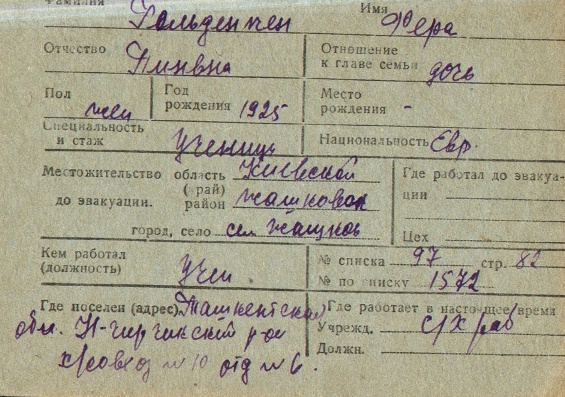 Фамилия Гольденген Имя Фера
Отчество Пинвна Отношение
к главе семьи дочь
Пол жен Год
рождения 1925 Место
рождения -
Специальность
и стаж учениц Национальность Евр.
Местожительство область Киевской Где работал до эвакуа-
(край)
до эвакуации. район Жашковск ции
город, село сел Жашков Цех
Кем работал
(должность) учен. № списка 97 стр. 82
№ по списку 1572
Где поселен (адрес) Ташкентская Где работает в настоящее время
обл. Н-чирчикский р-он Учрежд. с/х раб
х/совхоз № 10 отд № 6. Должн.